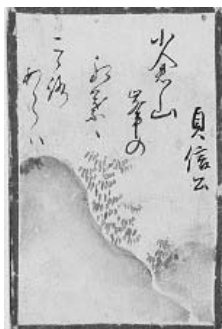 貞信公
小倉山
峯の
紅葉ゝ
こゝ路
あらハ